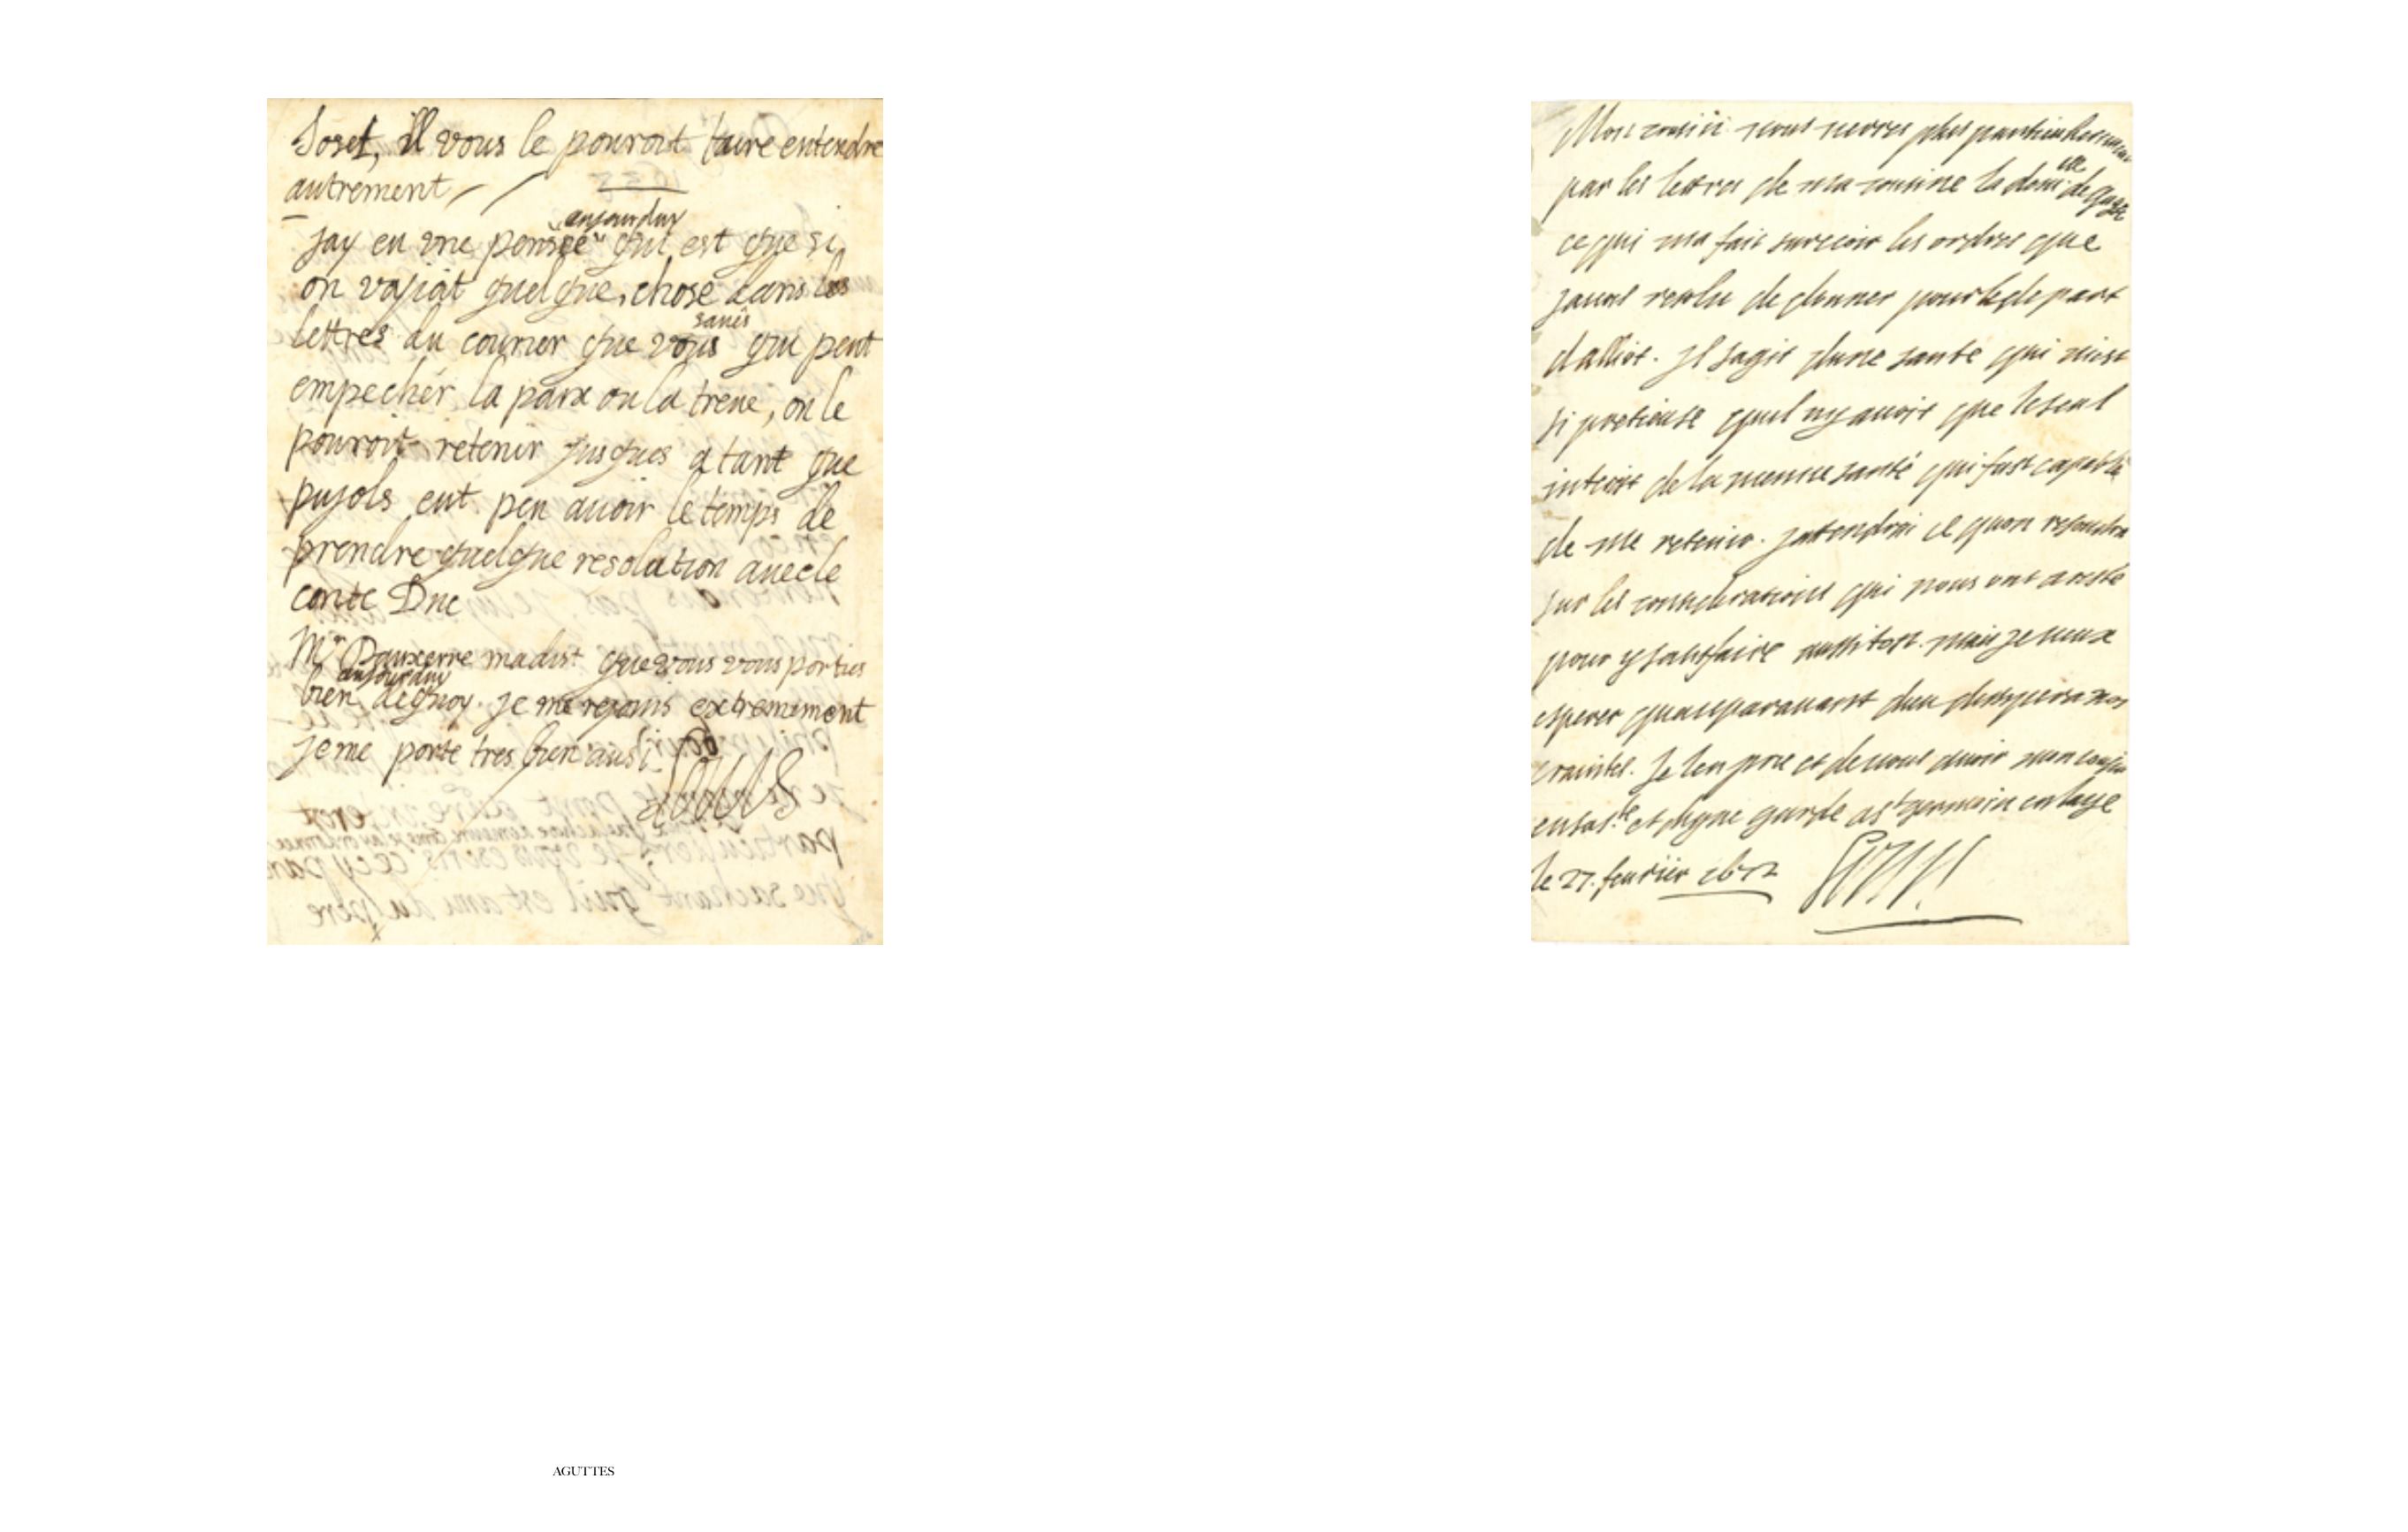 Josef, il vous le pouroit faire entendre
autrement
aujourduy
jay eu une pensee qui est que si
on voyiat quelque chose dans les
sanes
lettres du courier que vous qui peut
empecher la paix ou la treue, on le
pouroit retenir jusques a tant que
pujols eut peu auoir le temps de
prendre quelque resolution auec le
conte Duc
Mr Dauxerre madist que vous vous porties
aujourduy
bien dequoy je me rejouis extremement
je me porte tres bien aussi
Louis
Mon cousin vous verres plus particulierement
par les lettres de ma cousine la dem elle de Guise
ce qui ma fait surceoir les ordres que
jauois resolu de donner pour le depart
dalliot. Il sagit dune sante qui mest
si pretieuse quil ny auoit que le seul
interest de la mesme santé qui fust capable
de me retenir. jattendrai ce quon respondra
sur les considerations qui nous ont aresté
pour y satisfaire aussitost. mais je veux
esperer quauparauant dieu dissipera nos
craintes. Je len prie et de vous auoir mon cousin
en sa ste et digne garde a st germain en laye
le 27. feurier 1672
Louis
AGUTTES